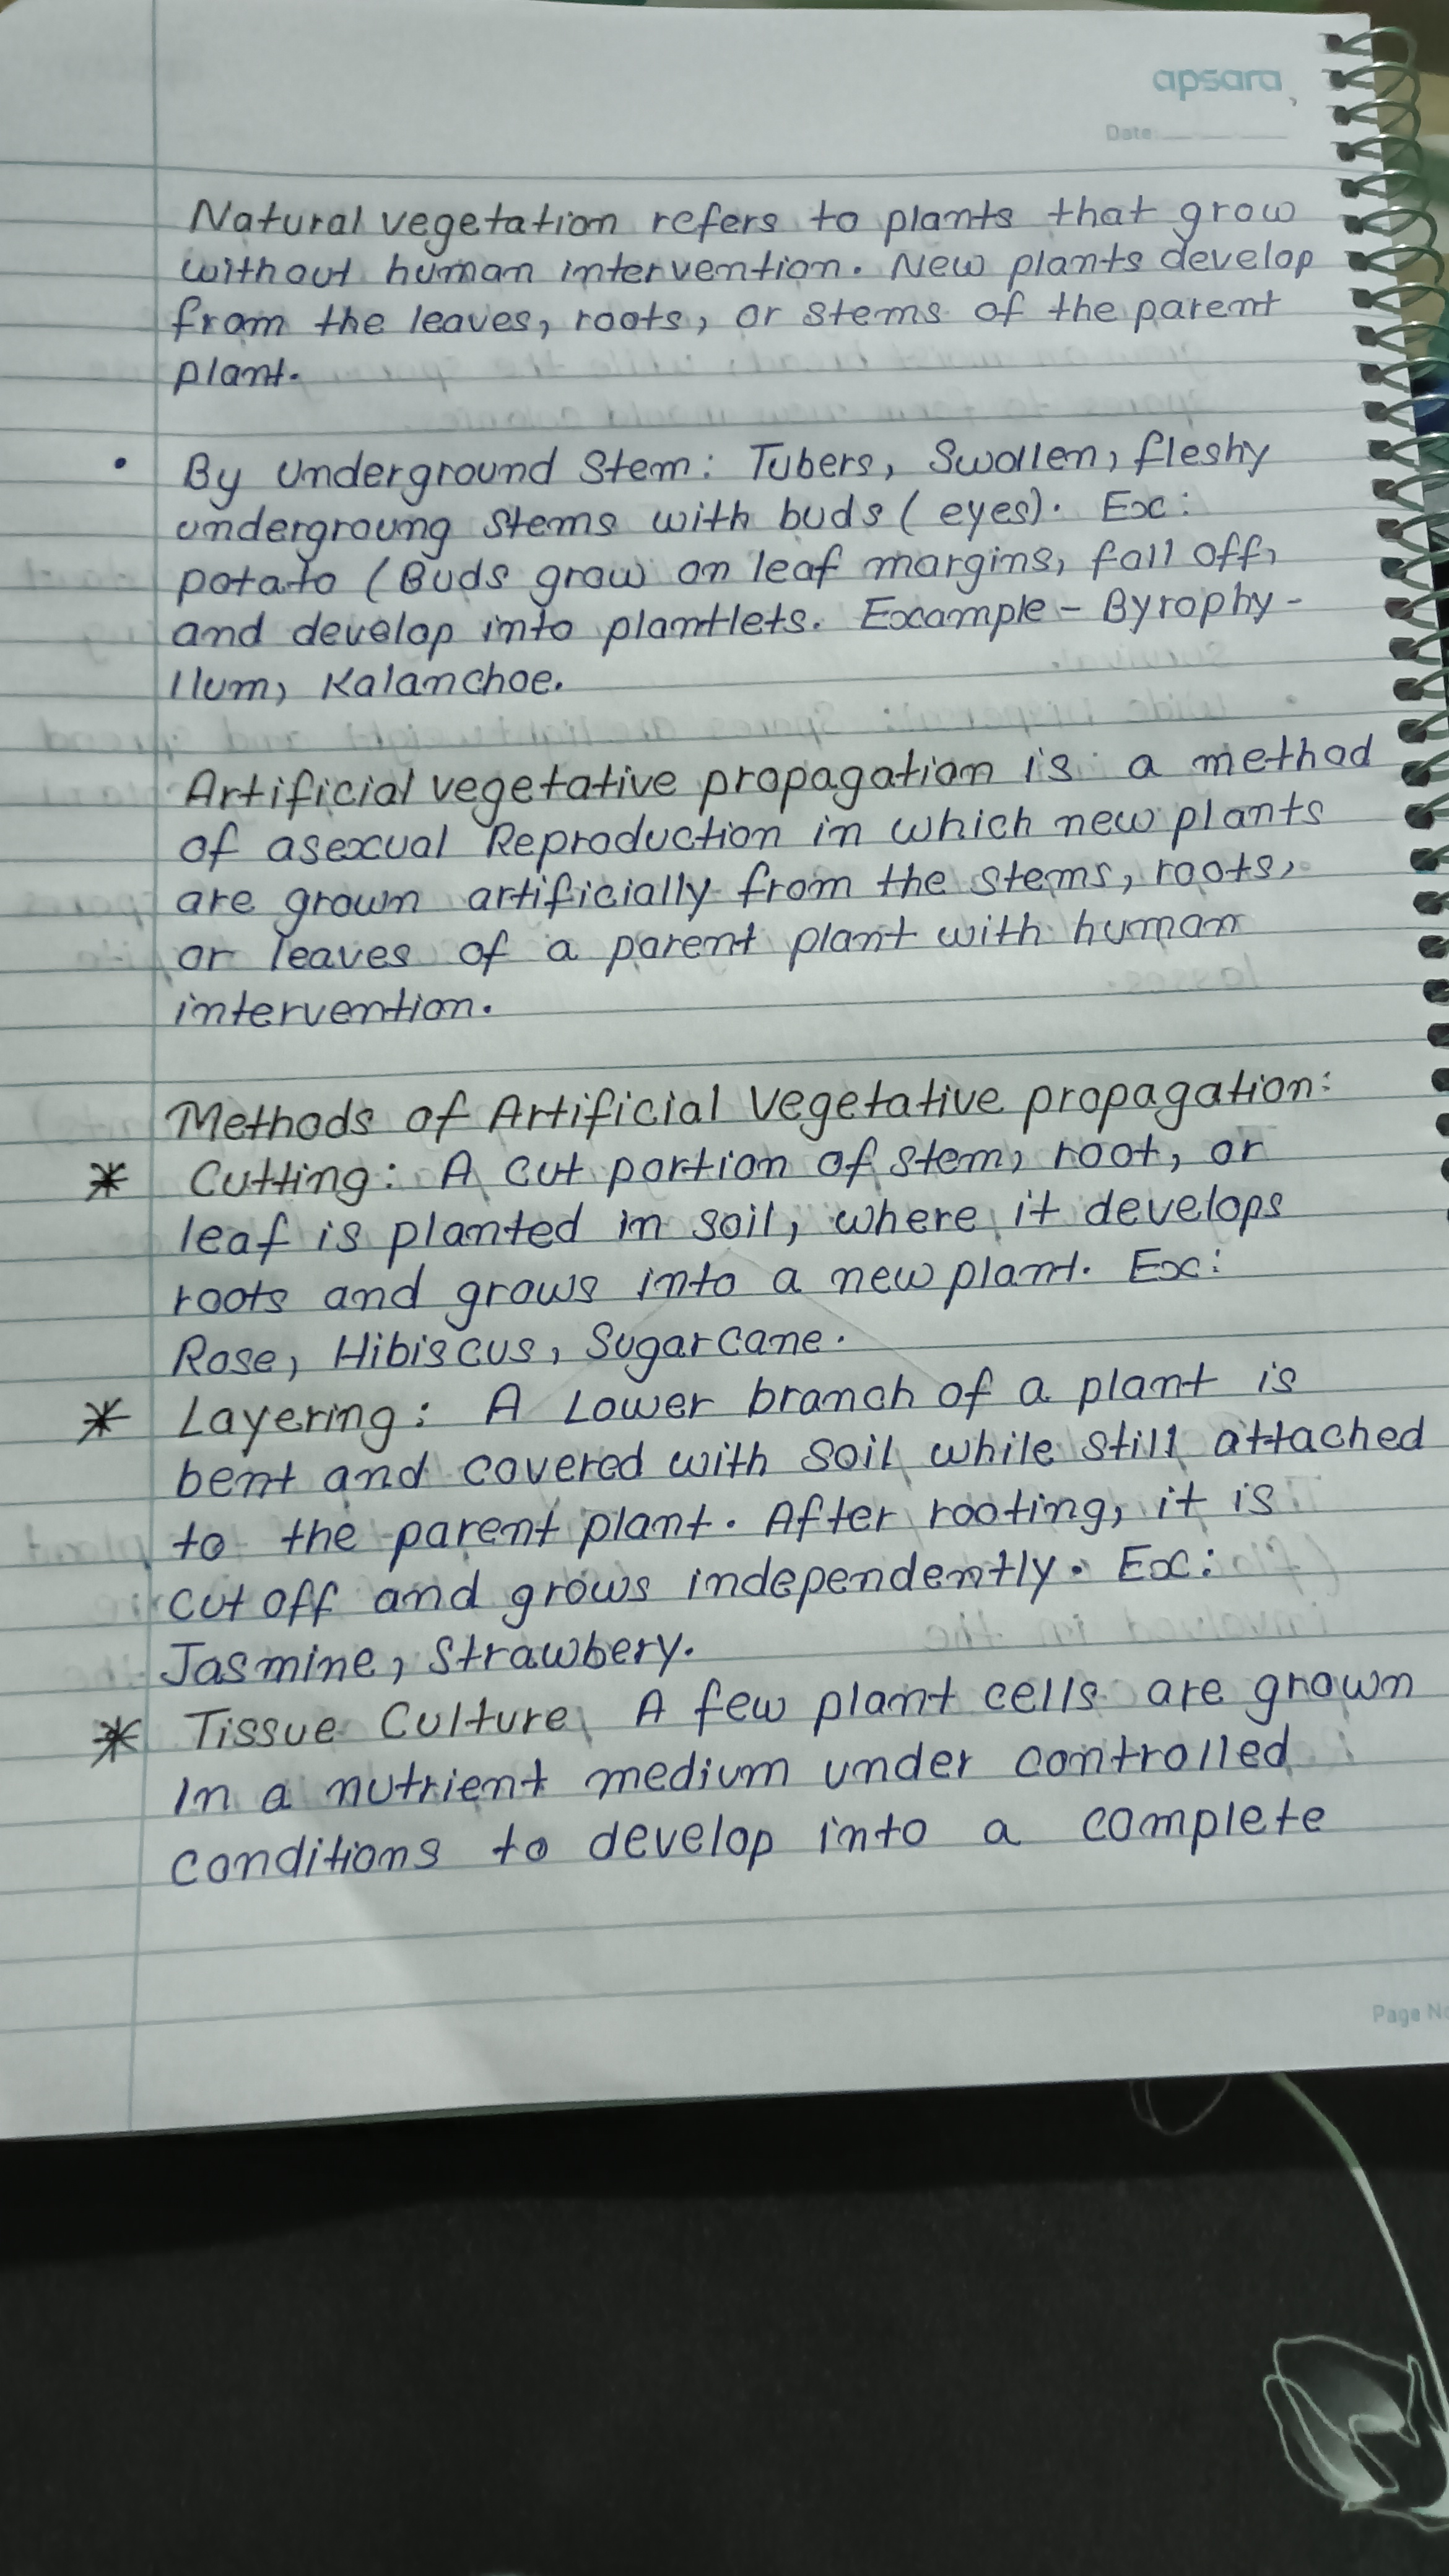 apsara
Date
Natural vegetation refers to plants that grow
without human intervention. New plants develop
from the leaves, roots, or stems of the parent
plant.
• By Underground Stem: Tubers, Swollen, fleshy
undergroung stems with buds (eyes). Ex:
potato (Buds grow on leaf margins, fall off,
and develop into plantlets. Example - Byrophy-
llum, Kalanchoe.
Artificial vegetative propagation is a method
of asexual Reproduction in which new plants
are grown artificially from the stems, roots,
or leaves of a parent plant with human
intervention.
Methods of Artificial Vegetative propagation:
* Cutting: A cut portion of stem, root, or
leaf is planted in soil, where it develops
roots and grows into a new plant. Ex:
Rose, Hibiscus, Sugarcane.
* Layering: A Lower branch of a plant is
bent and covered with soil while still attached
to the parent plant. After rooting, it is
cut off and grows independently. Ex:
Jasmine, Strawbery.
* Tissue Culture A few plant cells are grown
In a nutrient medium under controlled
conditions to develop into a complete
Page No